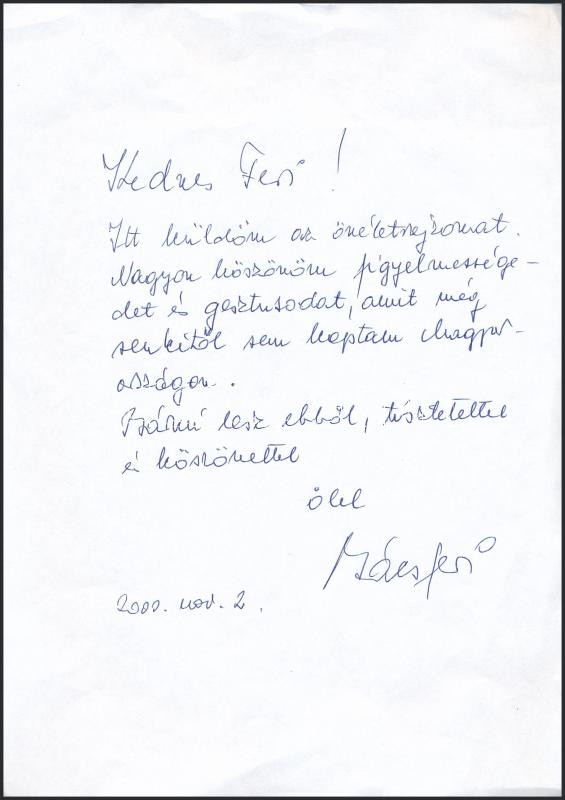 Kedves Feri!
Itt küldöm az önéletrajzomat.
Nagyon köszönöm figyelmessége-
det és gesztusodat, amit még
senkitől sem kaptam Magyar-
országon.
Bármi lesz ebből, tisztelettel
és köszönettel
ölel
2000. nov. 2.